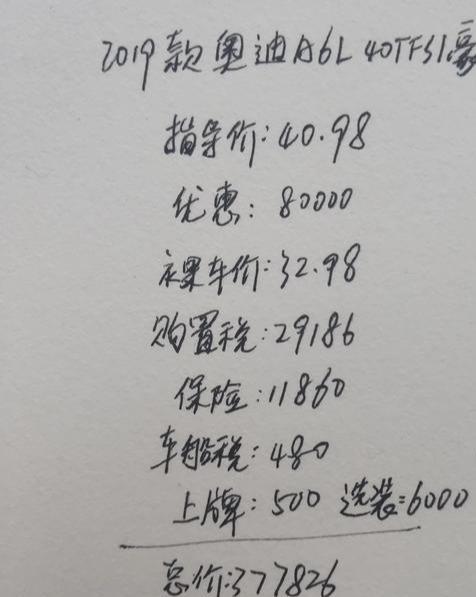 2019款奥迪A6L 40TFSI豪
指导价:40.98
优惠:80000
裸车价:32.98
购置税:29186
保险:11860
车船税:480
上牌:500 选装:6000
总价:377826